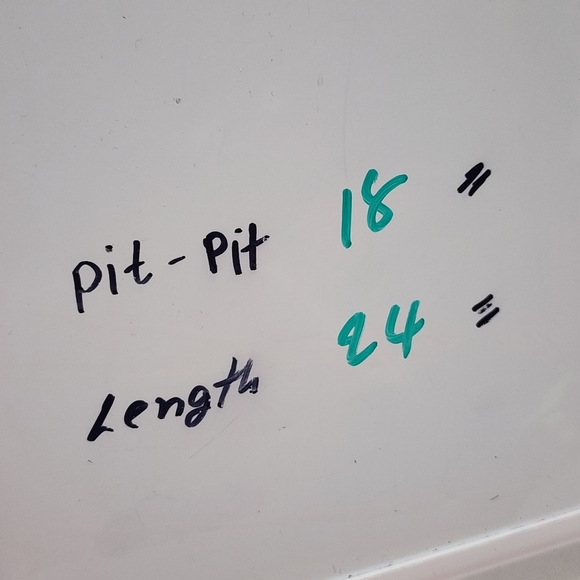 pit - pit 18 "
Length 24 "